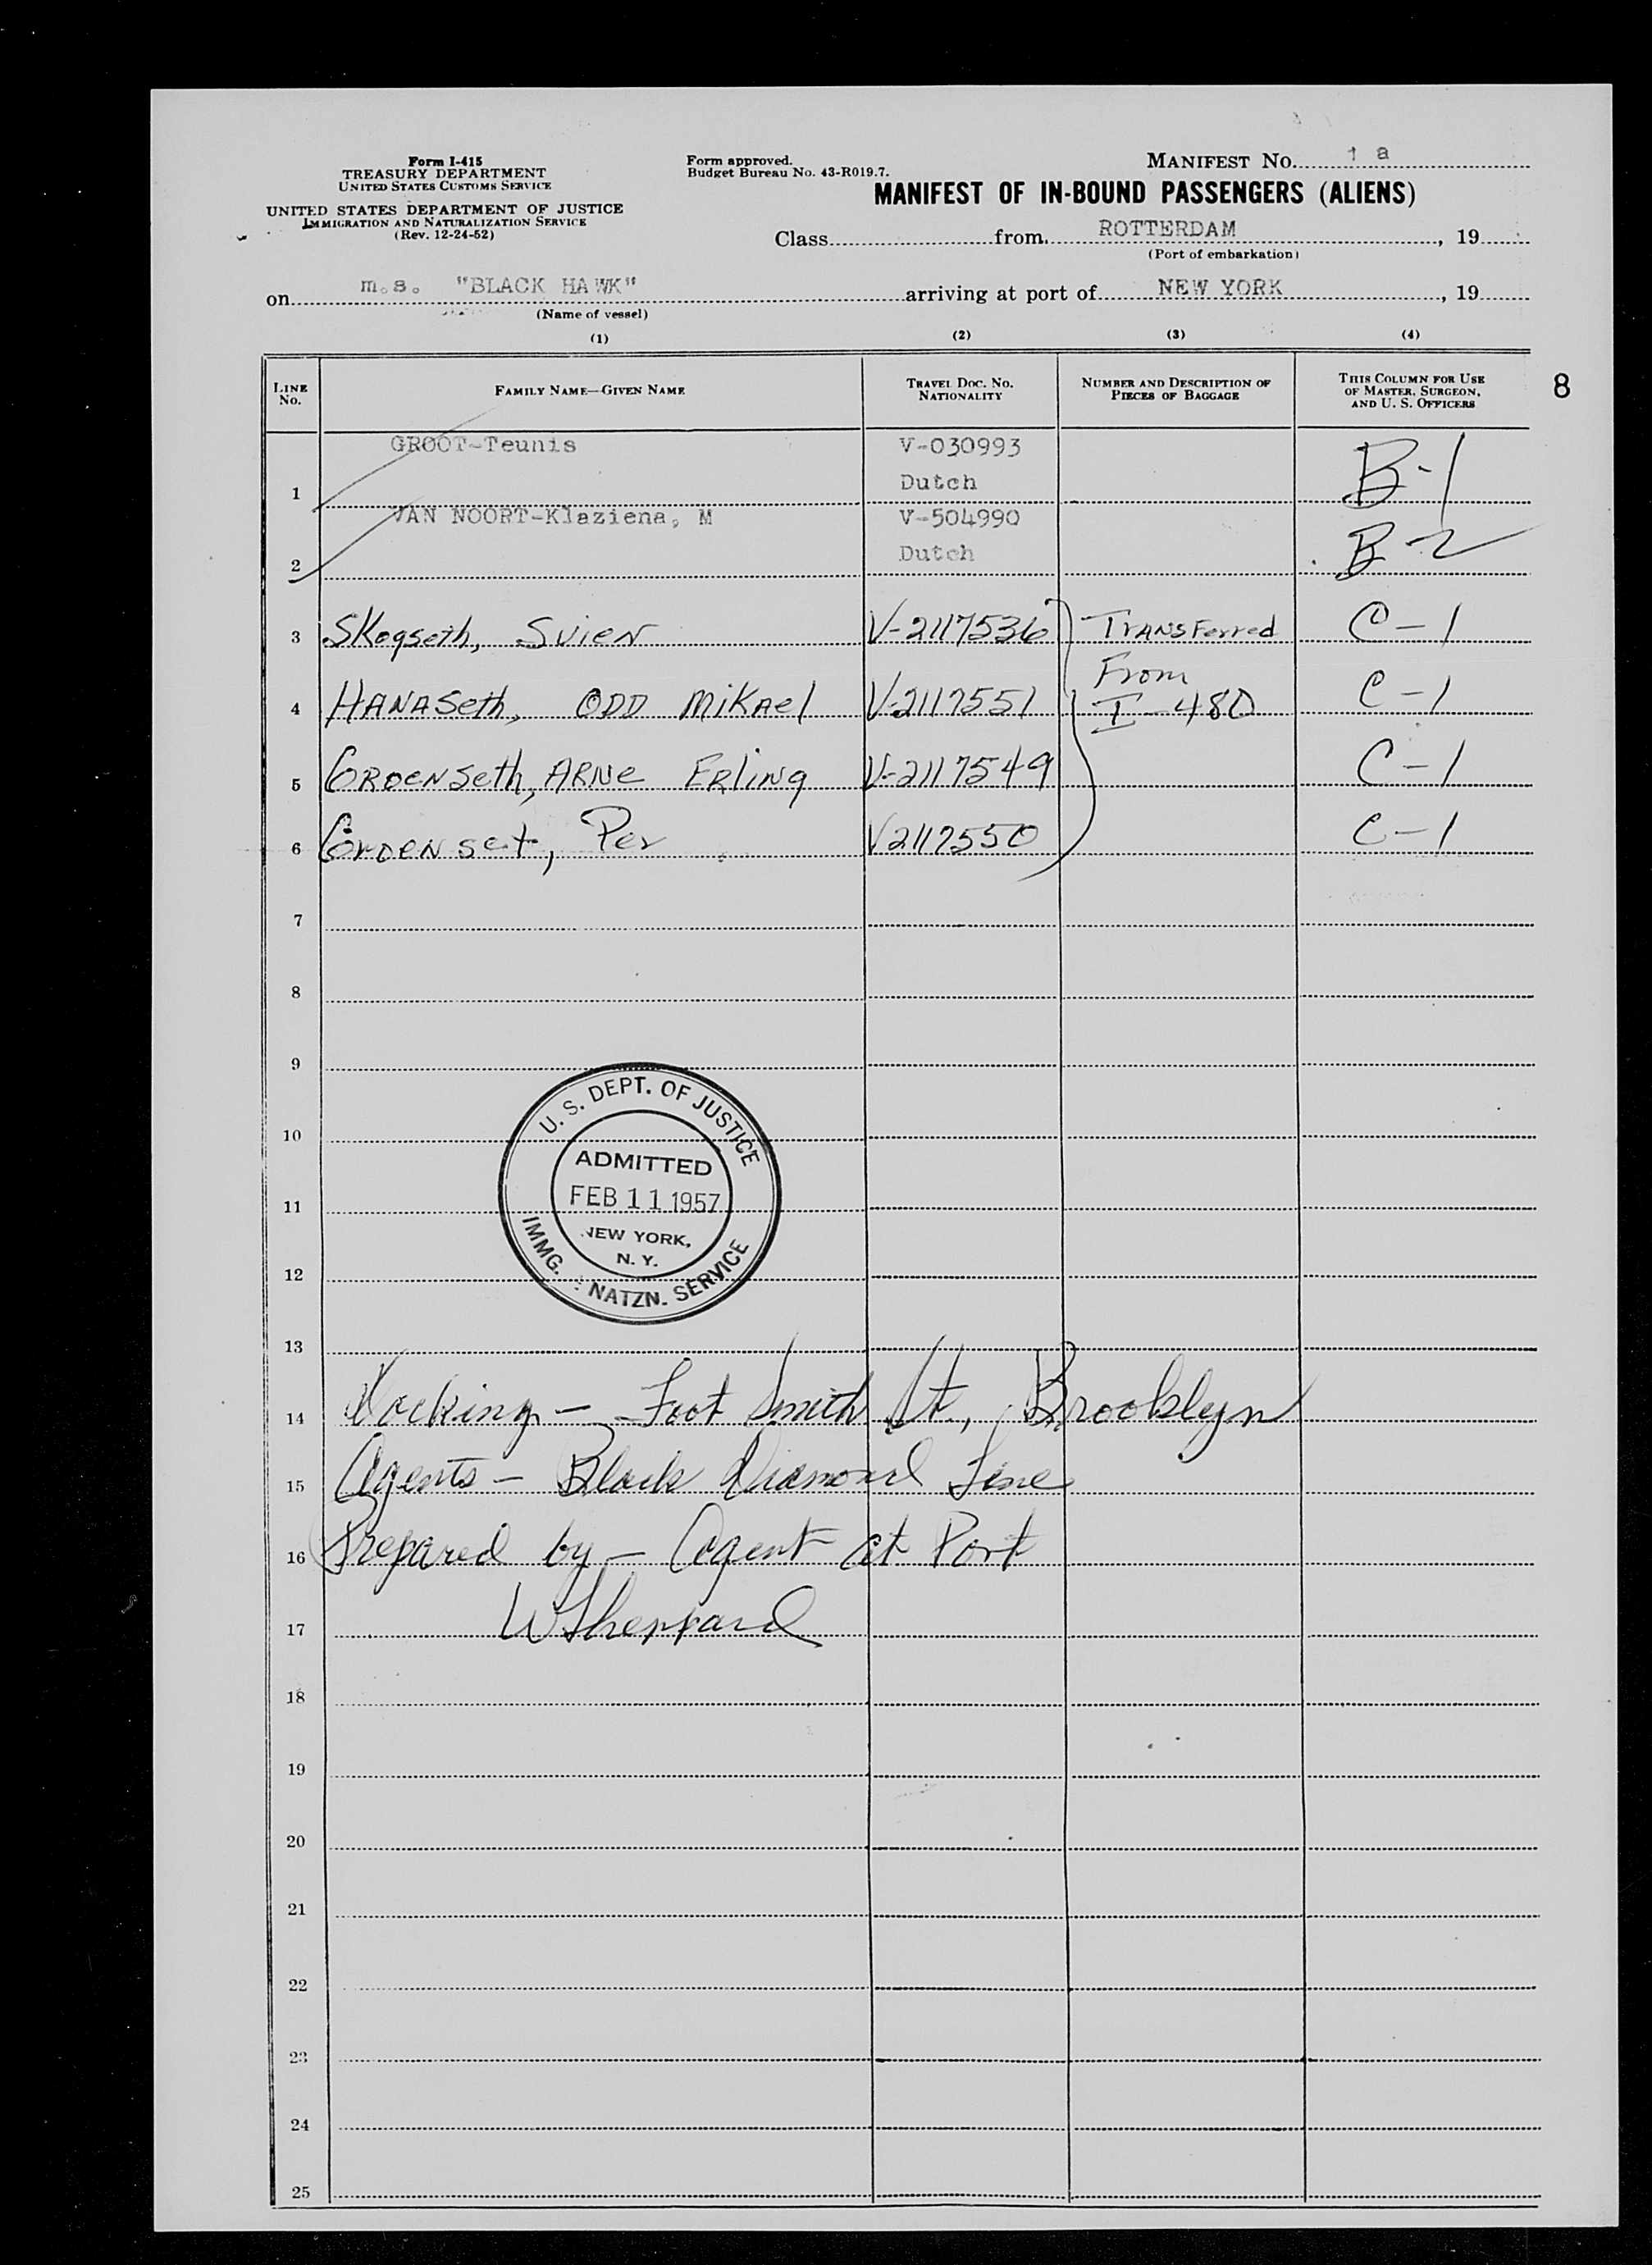 Form I-415
TREASURY DEPARTMENT
UNITED STATES CUSTOMS SERVICE
UNITED STATES DEPARTMENT OF JUSTICE
IMMIGRATION AND NATURALIZATION SERVICE
(Rev. 12-24-52)
Form approved.
Budget Bureau No. 43-R019.7.
MANIFEST NO. 1 a
MANIFEST OF IN-BOUND PASSENGERS (ALIENS)
Class from ROTTERDAM, 19
(Port of embarkation)
on m.s. "BLACK HAWK" arriving at port of NEW YORK, 19
(Name of vessel)
(1) (2) (3) (4)
LINE NO. FAMILY NAME—GIVEN NAME TRAVEL DOC. NO. NATIONALITY NUMBER AND DESCRIPTION OF PIECES OF BAGGAGE THIS COLUMN FOR USE OF MASTER, SURGEON, AND U. S. OFFICERS
8
1 GROOT-Teunis V-030993 Dutch B-1
2 VAN NOORT-Klaziena, M V-504990 Dutch B-2
3 Skogseth, Svien V-2117536 Transferred C-1
4 HANASeth, ODD MiKAel V-2117551 From I-480 C-1
5 GROENSeth, ARNe ERLing V-2117549 C-1
6 Groenset, Per V2117550 C-1
7
8
9
10
11
12
13
U. S. DEPT. OF JUSTICE
ADMITTED
FEB 11 1957
NEW YORK,
N. Y.
IMMG. & NATZN. SERVICE
14 Docking - Foot Smith St, Brooklyn
15 Agents - Black Diamond Line
16 Prepared by - Agent at Port
17 W Sheppard
18
19
20
21
22
23
24
25